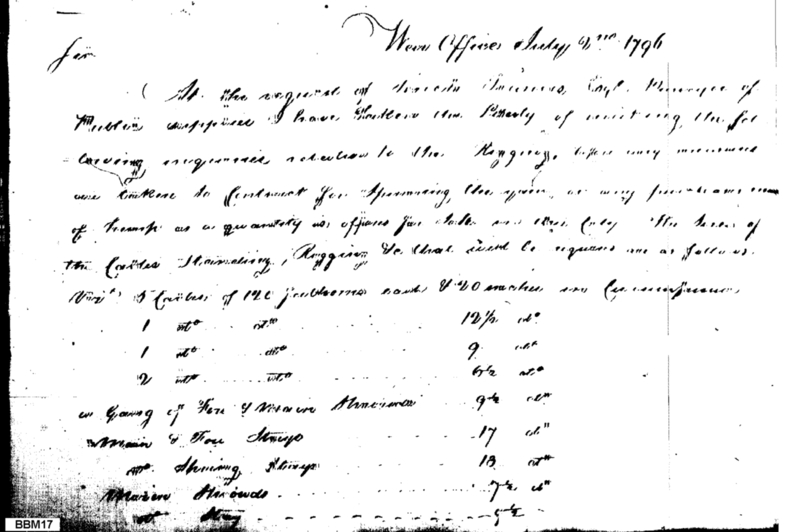 War Office July 2nd 1796
Sir
At the request of Francis, Esqr. Purveyor of
Public Supplies I have taken the liberty of making the fol
lowing enquiries relative to the Rigging, before any measures
are taken to Contract for Spinning the yarn, or any purchase made
of hemp as a quantity is offered for Sale in this City. The sizes of
the Cables Standing, Rigging &c. that will be required are as follows.
Vizt. Cables of 120 fathoms each & 20 inches in Circumference
1 do do 12 1/2 do
1 do do 9 do
2 do do 6 1/2 do
a Gang of Fore & Main Shrouds 9 1/2 do
Main & Fore Stays 17 do
do Spring Stays 13 do
Mizen Shrouds 7 1/2 do
do Stay
BBM17